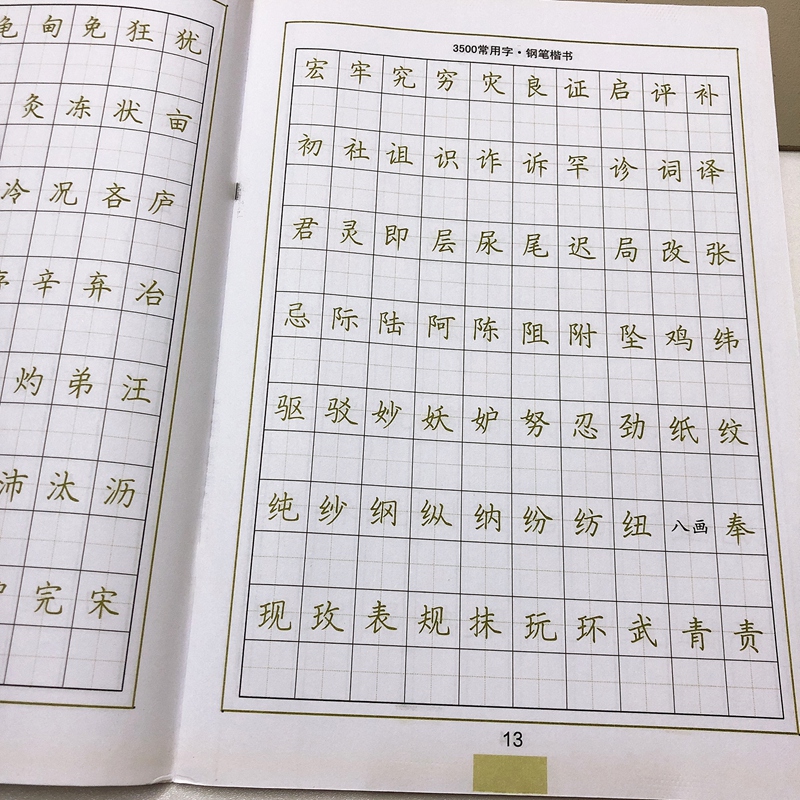 龟甸免狂犹
灸冻状亩
冷况吝庐
序辛弃冶
灼弟汪
沛汰沥
完宋
3500常用字·钢笔楷书
宏牢究穷灾良证启评补
初社诅识诈诉罕诊词译
君灵即层尿尾迟局改张
忌际陆阿陈阻附坠鸡纬
驱驳妙妖妒努忍劲纸纹
纯纱纲纵纳纷纺纽八画奉
现玫表规抹玩环武青责
13